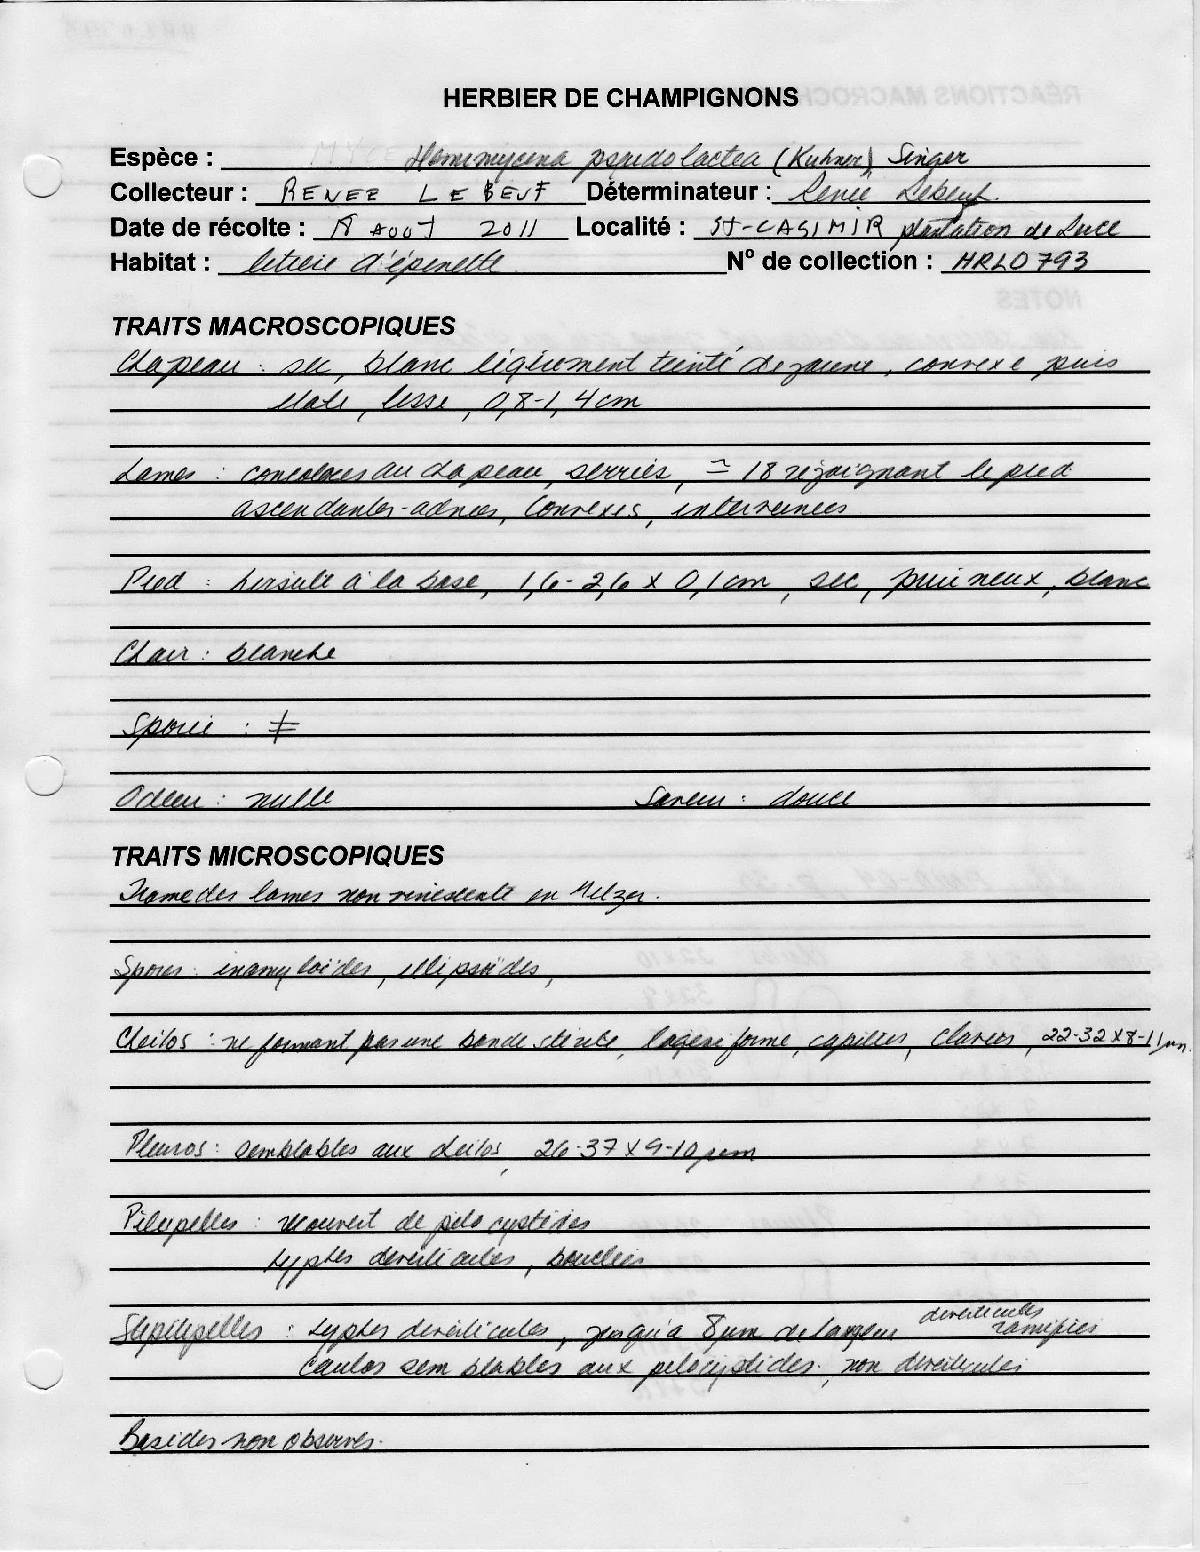 HERBIER DE CHAMPIGNONS
Espèce : Hemimycena pseudolactea (Kuhner) Singer
Collecteur : RENEE LEBEUF Déterminateur : Renée Lebeuf
Date de récolte : 18 AOUT 2011 Localité : ST-CASIMIR plantation de Luce
Habitat : litière d'épinette N° de collection : HRL0793
TRAITS MACROSCOPIQUES
Chapeau : sec, blanc légèrement teinté de jaune, convexe puis
étalé, lisse, 0,8-1,4 cm
Lames : concolores au chapeau, serrées, ≃ 18 rejoignant le pied
ascendantes-adnées, convexes, interveinées
Pied : hirsute à la base, 1,6-2,6 x 0,1 cm, sec, pruineux, blanc
Chair : blanche
Sporée : ≠
Odeur : nulle Saveur : douce
TRAITS MICROSCOPIQUES
Trame des lames non vinescente en Melzer.
Spores : inamyloïdes, ellipsoïdes,
Cheilos : ne formant pas une bande stérile, lageniforme, capitées, clavées, 22-32 x 8-11 µm.
Pleuros : semblables aux cheilos, 26-37 x 9-10 µm
Pileipellis : recouvert de pilocystides
hyphes diverticulées, bouclées
Stipitipellis : hyphes diverticulées, jusqu'à 8 µm de largeur diverticules ramifiés
Caulos semblables aux pilocystides, non diverticulées
Basides non observées.